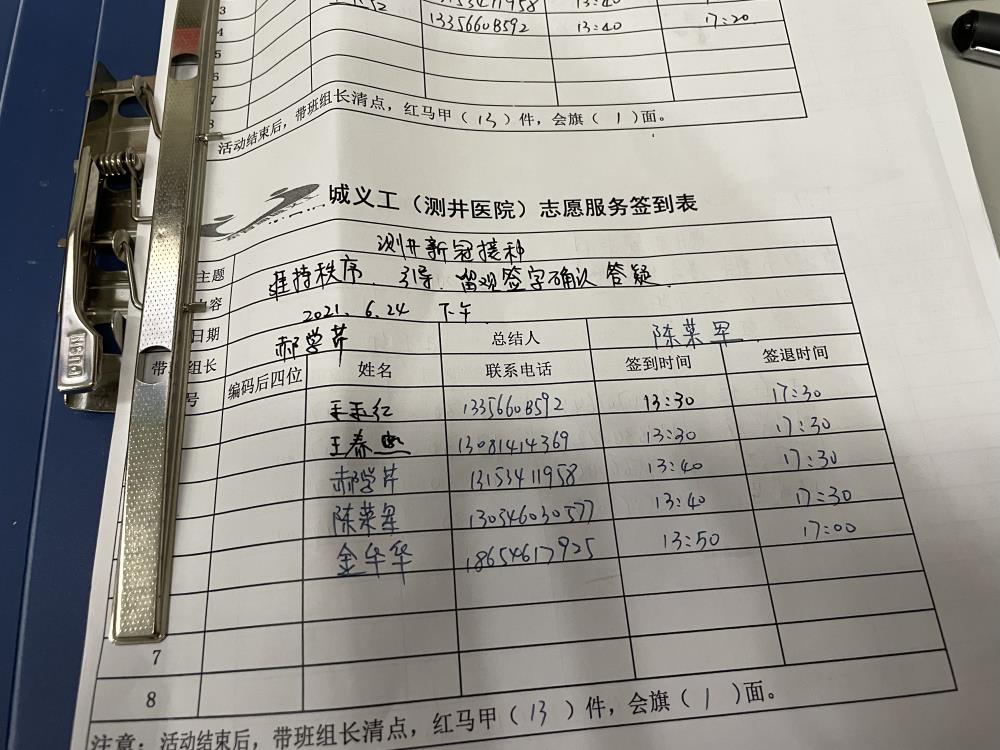 3 13:40
4 13356608592 13:40 17:20
5
6
7
8
活动结束后，带班组长清点，红马甲（13）件，会旗（1）面。
城义工（测井医院）志愿服务签到表
主题 测井新冠接种
内容 维持秩序、引导、留观签字确认 答疑
日期 2021.6.24 下午
带班组长 郝学芹 总结人 陈荣军
号 编码后四位 姓名 联系电话 签到时间 签退时间
王玉红 13356608592 13:30 17:30
王春 13081414369 13:30 17:30
郝学芹 13153411958 13:40 17:30
陈荣军 13054630577 13:40 17:30
金华华 18654617925 13:50 17:00
7
8
注意：活动结束后，带班组长清点，红马甲（13）件，会旗（1）面。